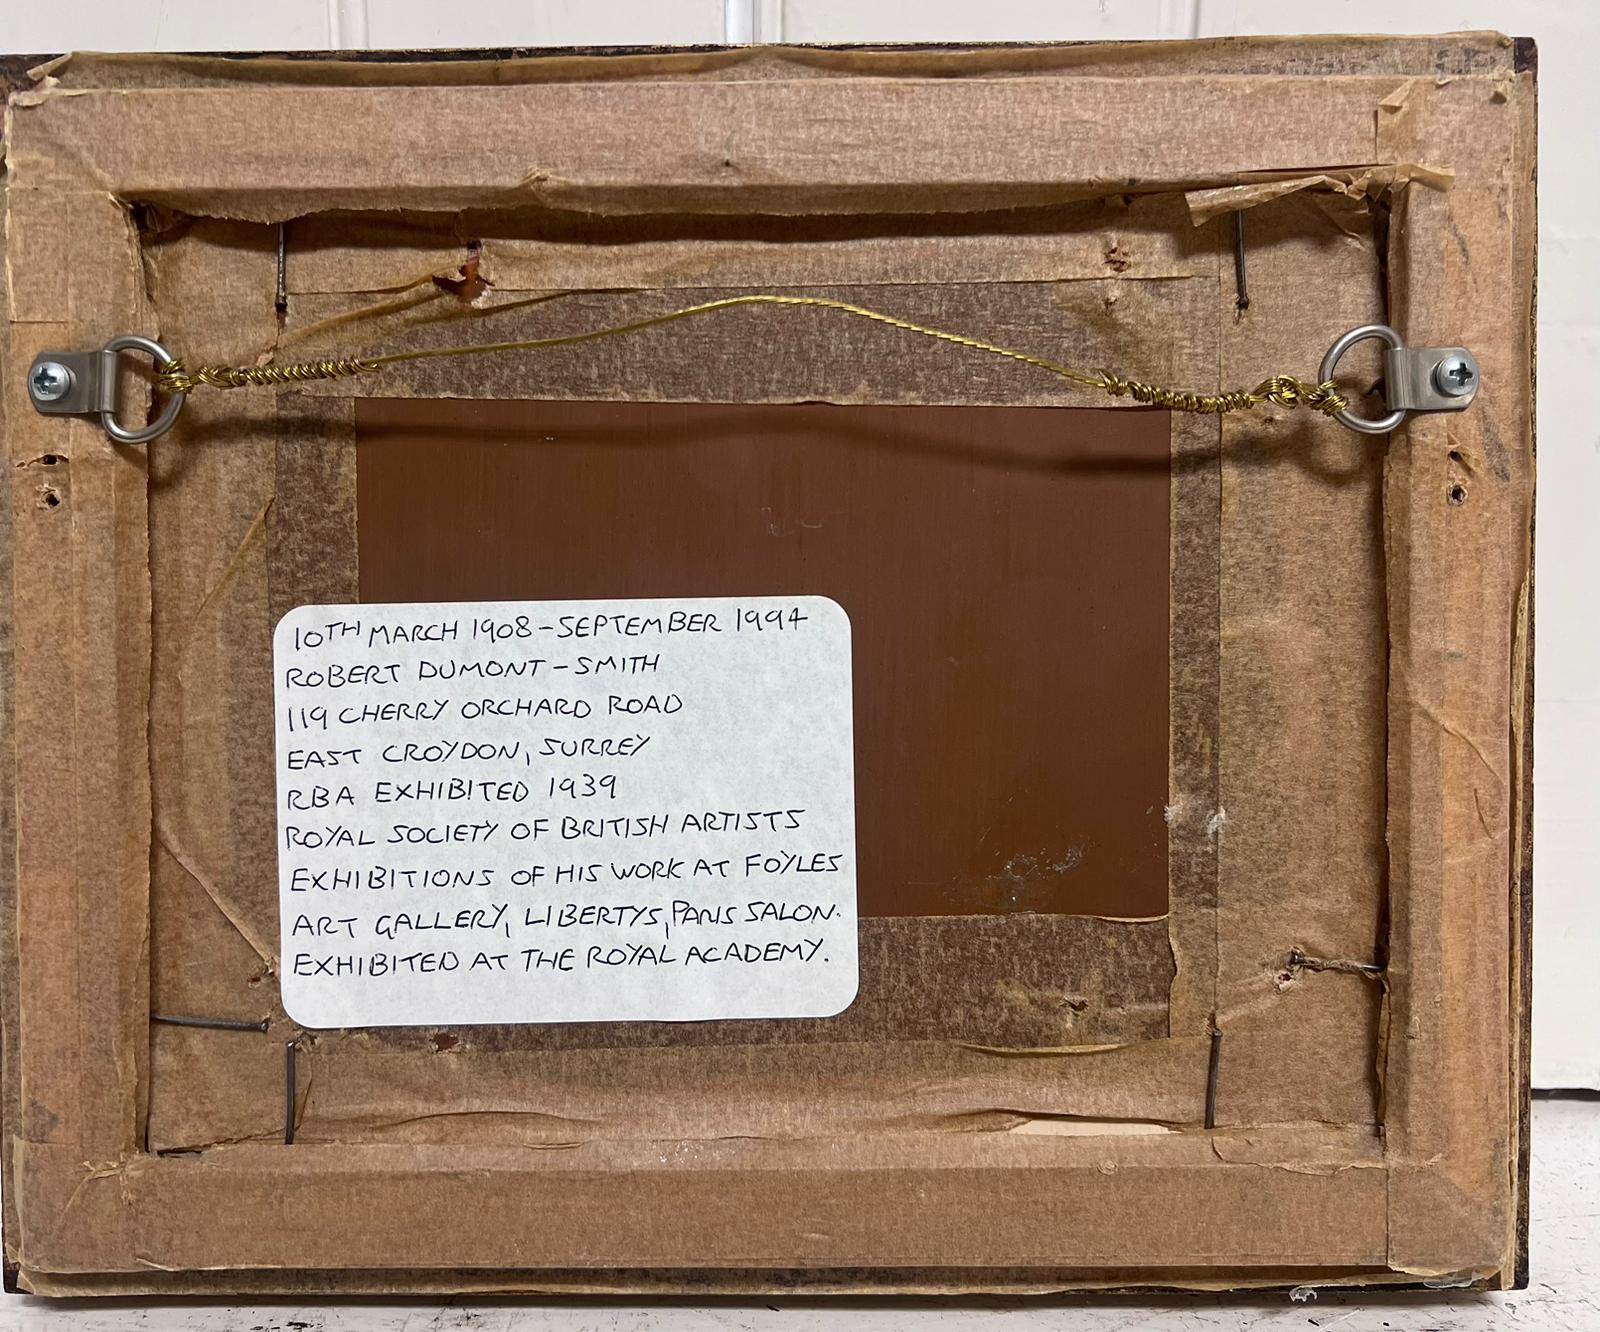 10TH MARCH 1908 - SEPTEMBER 1994
ROBERT DUMONT - SMITH
119 CHERRY ORCHARD ROAD
EAST CROYDON, SURREY
RBA EXHIBITED 1939
ROYAL SOCIETY OF BRITISH ARTISTS
EXHIBITIONS OF HIS WORK AT FOYLES
ART GALLERY, LIBERTYS, PARIS SALON.
EXHIBITED AT THE ROYAL ACADEMY.